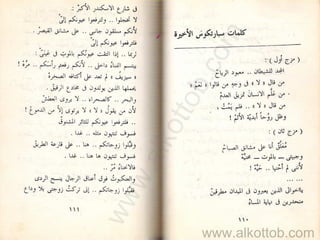 كلمات سبارتكوس الأخيرة
( مزج أول ) :
المجد للشيطان .. معبود الرياح
من قال « لا » في وجه من قالوا « نعم »
من علّم الانسان تمزيق العدم
من قال « لا » .. فلم يمت ،
وظل روحاً أبدية الألم !
( مزج ثان ) :
معلّق أنا على مشانق الصباح
وجبهتي – بالموت – محنيّة
لأنني لم أحنها .. حيّة !
... ...
يا اخوتي الذين يعبرون في الميدان مطرقين
منحدرين في نهاية المساء
١١٠
في شارع الاسكندر الأكبر :
لا تخجلوا .. ولترفعوا عيونكم إليّ
لأنكم معلقون جانبي .. على مشانق القيصر .
فلترفعوا عيونكم إليّ
لربما .. إذا التقت عيونكم بالموت في عينيّ :
يبتسم الفناء داخلي .. لأنكم رفعتم رأسكم .. مرّه !
« سيزيف » لم تعد على أكتافه الصخره
يحملها الذين يولدون في مخادع الرقيق .
والبحر .. كالصحراء .. لا يروي العطش
لأن من يقول « لا » لا يرتوي إلا من الدموع !
.. فلترفعوا عيونكم للثائر المشنوق
فسوف تنتهون مثله .. غدا .
وقبّلوا زوجاتكم .. هنا .. على قارعة الطريق
فسوف تنتهون ها هنا .. غدا .
فالانحناء مرّ ..
والعنكبوت فوق أعناق الرجال ينسج الردى
فقبّلوا زوجاتكم .. إني تركت زوجتي بلا وداع
١١١
www.alkottob.com
www.alkottob.com